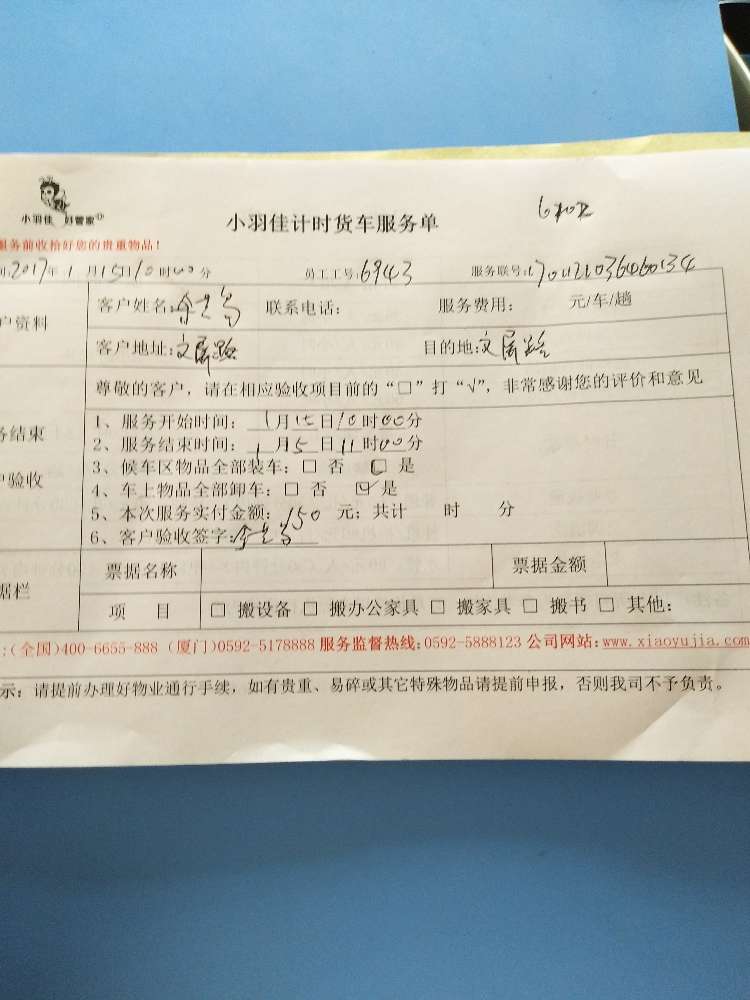 小羽佳 好管家
小羽佳计时货车服务单
服务前收拾好您的贵重物品!
2017年1月15日10时00分 员工工号:6943 服务联号:
户资料 客户姓名: 联系电话: 服务费用: 元/车/趟
客户地址:文屏路 目的地:文屏路
尊敬的客户,请在相应验收项目前的“□”打“√”,非常感谢您的评价和意见
务结束
户验收
1、服务开始时间:1月15日10时00分
2、服务结束时间:1月5日11时00分
3、候车区物品全部装车:□ 否 □ 是
4、车上物品全部卸车:□ 否 ☑是
5、本次服务实付金额:150 元;共计 时 分
6、客户验收签字:
据栏 票据名称 票据金额
项 目 □ 搬设备 □ 搬办公家具 □ 搬家具 □ 搬书 □ 其他:
:(全国)400-6655-888 (厦门)0592-5178888 服务监督热线:0592-5888123 公司网站:www.xiaoyujia.com
示:请提前办理好物业通行手续,如有贵重、易碎或其它特殊物品请提前申报,否则我司不予负责。